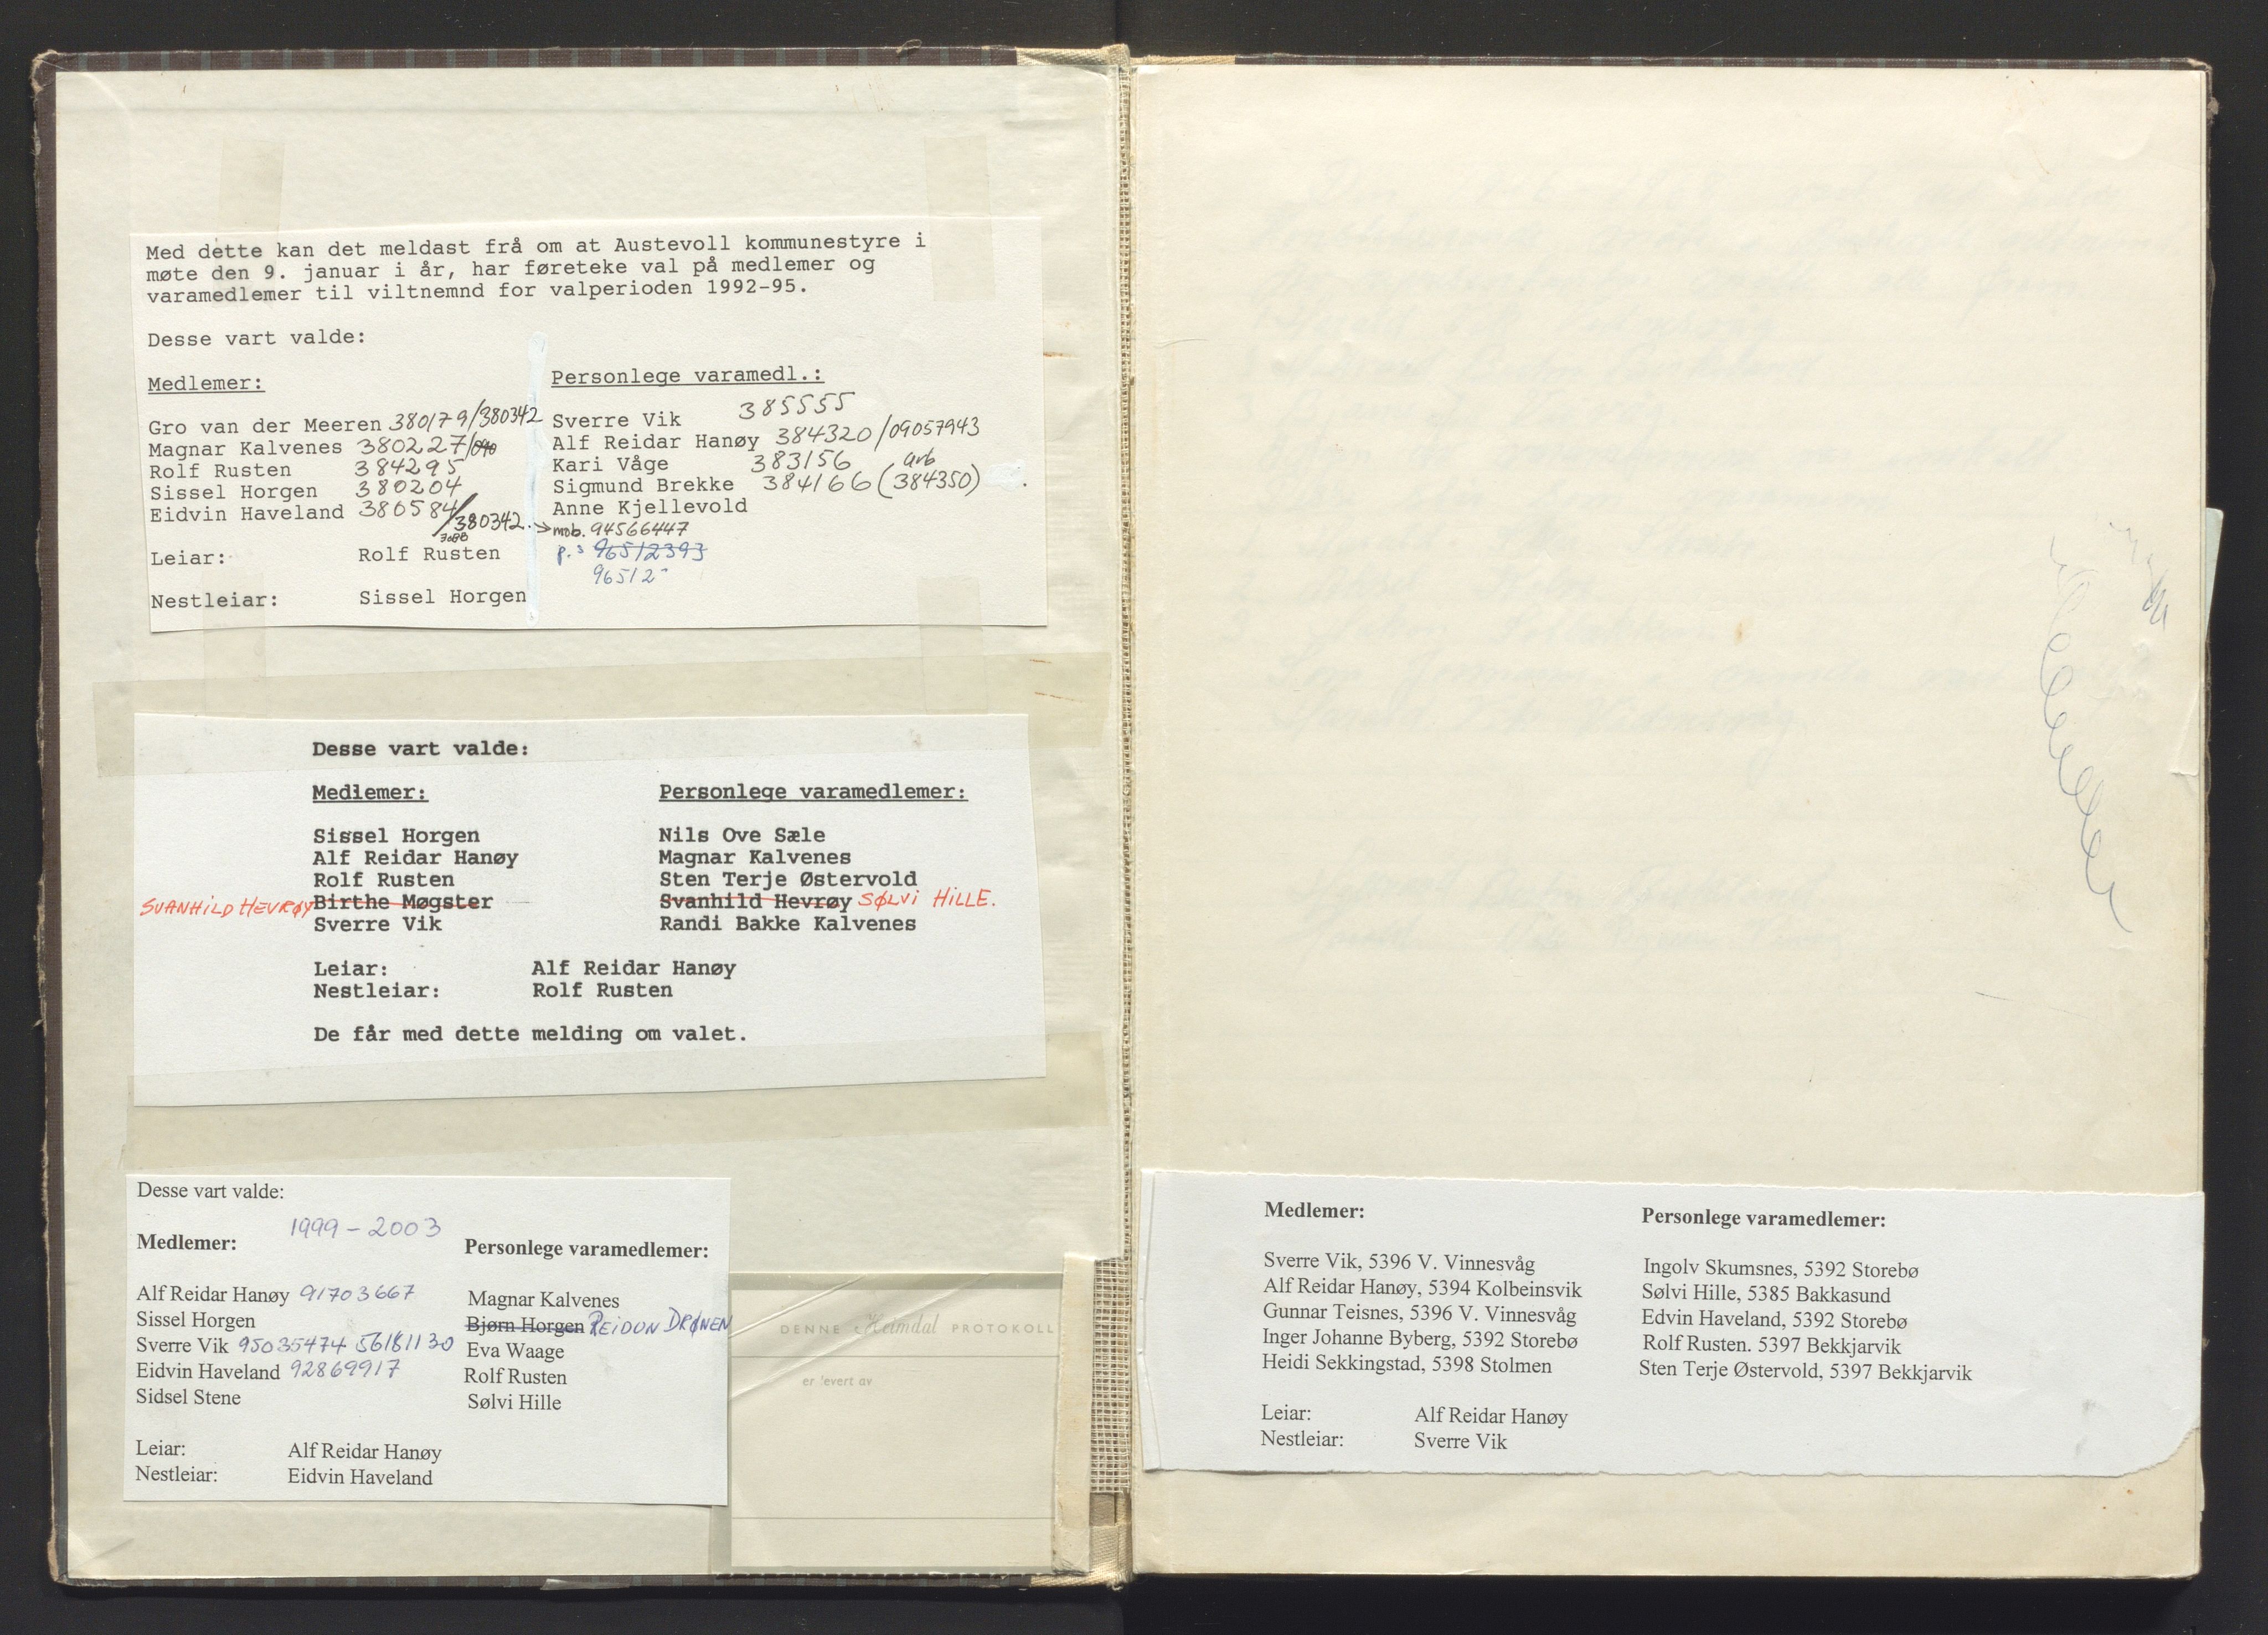 Med dette kan det meldast frå om at Austevoll kommunestyre i
møte den 9. januar i år, har føreteke val på medlemer og
varamedlemer til viltnemnd for valperioden 1992-95.
Desse vart valde:
Medlemer:
Gro van der Meeren 380179/380342
Magnar Kalvenes 380227/040
Rolf Rusten 384295
Sissel Horgen 380204
Eidvin Haveland 380584/380342
Leiar: Rolf Rusten
Nestleiar: Sissel Horgen
Personlege varamedl.:
Sverre Vik 385555
Alf Reidar Hanøy 384320/09057943
Kari Våge 383156 arb
Sigmund Brekke 384166 (384350)
Anne Kjellevold
→ mob. 94566447
p.s 96512393
96512
Desse vart valde:
Medlemer: Personlege varamedlemer:
Sissel Horgen Nils Ove Sæle
Alf Reidar Hanøy Magnar Kalvenes
Rolf Rusten Sten Terje Østervold
SVANHILD HEVRØY Birthe Møgster Svanhild Hevrøy SØLVI HILLE.
Sverre Vik Randi Bakke Kalvenes
Leiar: Alf Reidar Hanøy
Nestleiar: Rolf Rusten
De får med dette melding om valet.
Desse vart valde:
1999 - 2003
Medlemer: Personlege varamedlemer:
Alf Reidar Hanøy 91703667 Magnar Kalvenes
Sissel Horgen Bjørn Horgen REIDUN DRØNEN
Sverre Vik 95035474 56181130 Eva Waage
Eidvin Haveland 92869917 Rolf Rusten
Sidsel Stene Sølvi Hille
Leiar: Alf Reidar Hanøy
Nestleiar: Eidvin Haveland
DENNE Heimdal PROTOKOLL
er levert av
Medlemer: Personlege varamedlemer:
Sverre Vik, 5396 V. Vinnesvåg Ingolv Skumsnes, 5392 Storebø
Alf Reidar Hanøy, 5394 Kolbeinsvik Sølvi Hille, 5385 Bakkasund
Gunnar Teisnes, 5396 V. Vinnesvåg Edvin Haveland, 5392 Storebø
Inger Johanne Byberg, 5392 Storebø Rolf Rusten. 5397 Bekkjarvik
Heidi Sekkingstad, 5398 Stolmen Sten Terje Østervold, 5397 Bekkjarvik
Leiar: Alf Reidar Hanøy
Nestleiar: Sverre Vik